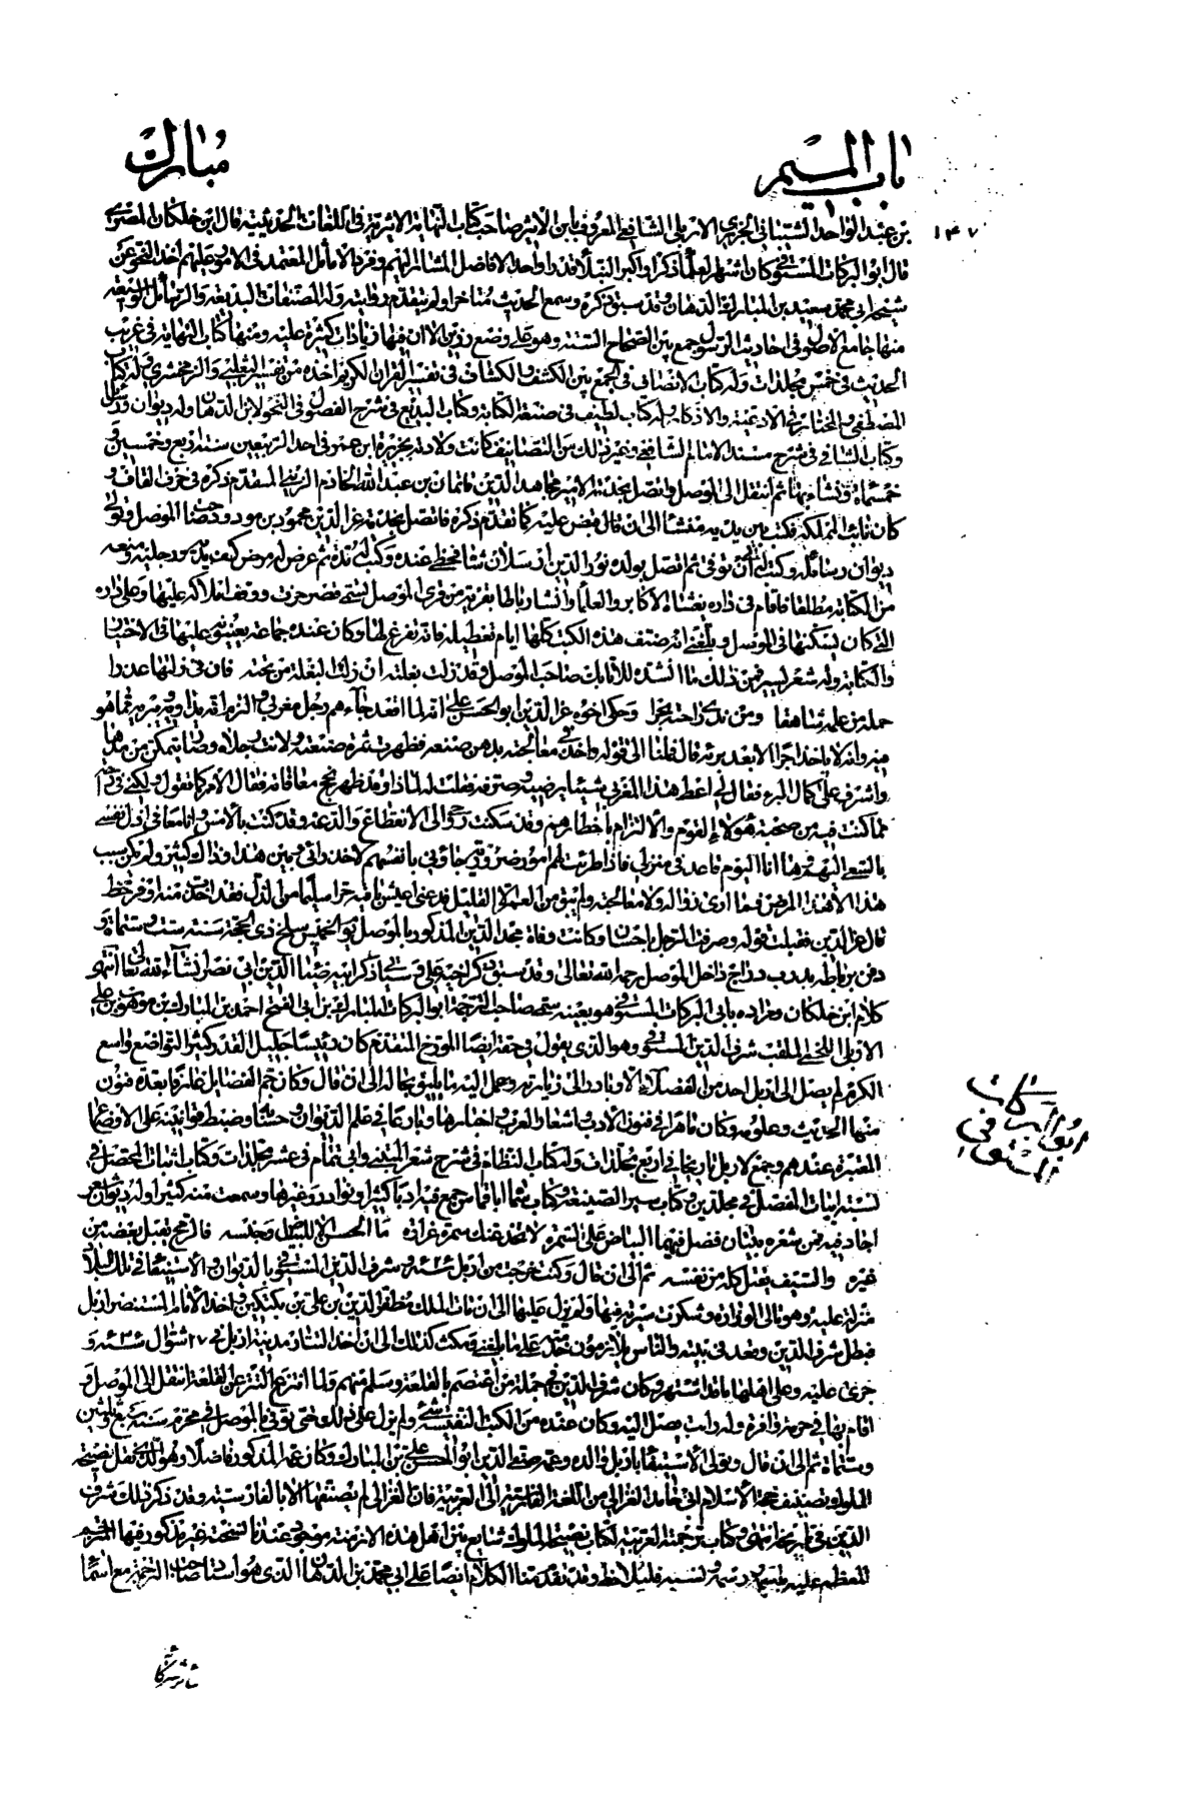 باب الميم
مبارك
١٤٧
بن عبد الواحد الشيباني الجزري الاربلي الشافعي المعروف بابن الاثير صاحب كتاب النهاية الاثيرية في اللغات الحديثية قال ابن خلكان المصري
قال ابو البركات المستوفي كان اشهر العلماء ذكرا واكبر النبلاء قدرا واحد الافاضل المشار اليهم وفرد الاماثل المعتمد في الامور عليهم اخذ النحو عن
شيخه ابي محمد سعيد بن المبارك الدهان وقد سبق ذكره وسمع الحديث متاخرا ولم يتقدم روايته وله المصنفات البديعة والرسائل الوسيعة
منها جامع الاصول في احاديث الرسول جمع بين الصحاح الستة وهو على وضع رزين الا ان فيها زيادات كثيرة عليه ومنها كتاب النهاية في غريب
الحديث في خمس مجلدات وله كتاب الانصاف في الجمع بين الكشف والكشاف في تفسير القران الكريم اخذه من تفسير الثعلبي والزمخشري وله كتاب
المصطفى والمختار في الادعية والاذكار وله كتاب لطيف في صنعة الكتابة وكتاب البديع في شرح الفصول في النحو لابن الدهان وله ديوان رسائل
وكتاب الشافي في شرح مسند الامام الشافعي وغير ذلك من التصانيف كانت ولادته بجزيرة ابن عمر في احد الربيعين سنة اربع واربعين و
خمسمائة ونشاء بها ثم انتقل الى الموصل واتصل بخدمة الامير مجاهد الدين قايمان بن عبد الله الخادم الزيني المتقدم ذكره في حرف القاف و
كان نائب المملكة فكتب بين يديه منشئا الى ان قال قبض عليه كما تقدم ذكره فاتصل بخدمة عز الدين محمود بن مودود صاحب الموصل وتولى
ديوان رسائله وكتب له الى ان توفي ثم اتصل بولده نور الدين ارسلان شاه فحظي عنده وكتب له مدة ثم عرض له مرض كف يديه ورجليه ومنعه
من الكتابة مطلقا فاقام في داره يغشاه الاكابر والعلماء وانشأ رباطا بقرية من قرى الموصل تسمى قصر حرب ووقف املاكه عليها وعلى داره
التي كان يسكنها في الموصل وبلغني انه صنف هذه الكتب كلها ايام تعطيله فانه تفرغ لها وكان عنده جماعة يعينونه عليها في الاختيار
والكتابة وله شعر يسير فمن ذلك ما انشده للاتابك صاحب الموصل وقد زلت بغلته ان زلت البغلة من تحته فان في زلتها عذرا
حملها من علمه شاهقا ومن ندى راحته بحرا وحكى اخوه عز الدين ابو الحسن علي انه لما اقعد جاءهم رجل مغربي والتزم انه يداويه ويبريه مما هو
فيه وانه لا ياخذ اجرا الا بعد برئه قال فملنا الى قوله واخذ في معالجته بدهن صنعه فظهرت ثمرة صنعته ولانت رجلاه وصار يتمكن من مدهما
واشرف على كمال البرء فقال لي اعط هذا المغربي شيئا يرضيه واصرفه فقلت له لماذا وقد ظهر نجح معافاته فقال الامر كما تقول ولكني في راحة
مما كنت فيه من صحبة هولاء القوم والالتزام باخطارهم وقد سكنت روحي الى الانقطاع والدعة وقد كنت بالامس وانا معافى اذل نفسي
بالسعي اليهم وها انا اليوم قاعد في منزلي فاذا طرئت لهم امور ضرورية جاؤني بانفسهم لاخذ رائي وبين هذا وذاك كثير ولم يكن سبب
هذا الا هذا المرض فما ارى زواله ولا معالجته ولم يبق من العمر الا القليل فدعني اعيش باقيه حرا سليما من الذل فقد اخذت منه اوفر حظ
قال عز الدين فقبلت قوله وصرفت الرجل باحسان وكانت وفاة مجد الدين المذكور بالموصل يوم الخميس سلخ ذي الحجة سنة ست وستمائة و
دفن برباطه بدرب دراج داخل الموصل رحمه الله تعالى وقد سبق ذكر اخيه علي وسياتي ذكر اخيه ضياء الدين ابي نصر الله انشاء الله تعالى انتهى
كلام ابن خلكان ومراده بابي البركات المستوفي هو بعينه سمي صاحب الترجمة ابو البركات المبارك بن ابي الفتح احمد بن المبارك بن موهوب بن علي
الاربلي اللخمي الملقب شرف الدين المستوفي وهو الذي يقول في حقه ايضا المورخ المتقدم كان رئيسا جليل القدر كثير التواضع واسع
الكرم لم يصل الى اربل احد من الفضلاء الا وبادر الى زيارته وحمل اليه ما يليق بحاله الى ان قال وكان جم الفضايل عارفا بعدة فنون
منها الحديث وعلومه وكان ماهرا في فنون الادب واشعار العرب واخبارها وبارعا في علم الديوان وحسابه وضبط قوانينه على الاوضاع
المعتبرة عندهم وجمع لاربل تاريخا في اربع مجلدات وله كتاب النظام في شرح شعر المتنبي وابي تمام في عشر مجلدات وكتاب اثبات المحصل في
نسبة ابيات المفصل في مجلدين وكتاب سر الصنيعة وكتاب سماه ابا قماش جمع فيه ادبا كثيرا ونوادر وغيرها وسمعت منه كثيرا وله ديوان شعر
اجاد فيه فمن شعره بيتان فضل فيهما البياض على السمرة لا تخدعنك سمرة غرارة ما الحسن الا للبياض وجنسه فالرمح يقتل بعضه من
غيره والسيف يقتل كله من نفسه ثم الى ان قال وكنت خرجت من اربل سنة ٦٢٦ وشرف الدين المستوفي بالديوان والاستيفاء في تلك البلاد
منزلة عليه وهو تالي الوزارة وشكرت سيرته فيها ولم يزل عليها الى ان مات الملك مظفر الدين بن علي بن بكتكين واخذ الامام المستنصر اربل
فبطل شرف الدين وقعد في بيته والناس يلازمون خدمته على ما بلغني ومكث كذلك الى ان اخذ التتار مدينة اربل في ٢٧ شوال سنة ٦٣٤ و
جرى عليه وعلى اهلها ما قد اشتهر وكان شرف الدين في جملة من اعتصم بالقلعة وسلم منهم ولما انتزع التتر عن القلعة انتقل الى الموصل و
اقام بها في حرمة وافرة وله راتب يصل اليه وكان عنده من الكتب النفيسة شيء ولم يزل على ذلك حتى توفي بالموصل في محرم سنة سبع وثلثين
وستمائة ثم الى ان قال وتولى الاستيفاء باربل والده وعمه صفي الدين ابو الحسن علي بن المبارك وكان عمه المذكور فاضلا وهو الذي نقل نصيحة
الملوك تصنيف حجة الاسلام ابي حامد الغزالي من اللغة الفارسية الى العربية فان الغزالي لم يصنفها الا بالفارسية وقد ذكر ذلك شرف
الدين في تاريخه انتهى وكتاب ترجمة العربية لكتاب نصيحة الملوك شايع بين اهل هذه الازمنة موجود عندنا نسخة غير مذكور فيها المترجم
المعظم عليه باسمه ورسمه ونسبه فليلاحظ وقد تقدمنا الكلام ايضا على ابي محمد بن الدهان الذي هو استاد صاحب الترجمة مع اسماء
ابو البركات
المستوفي